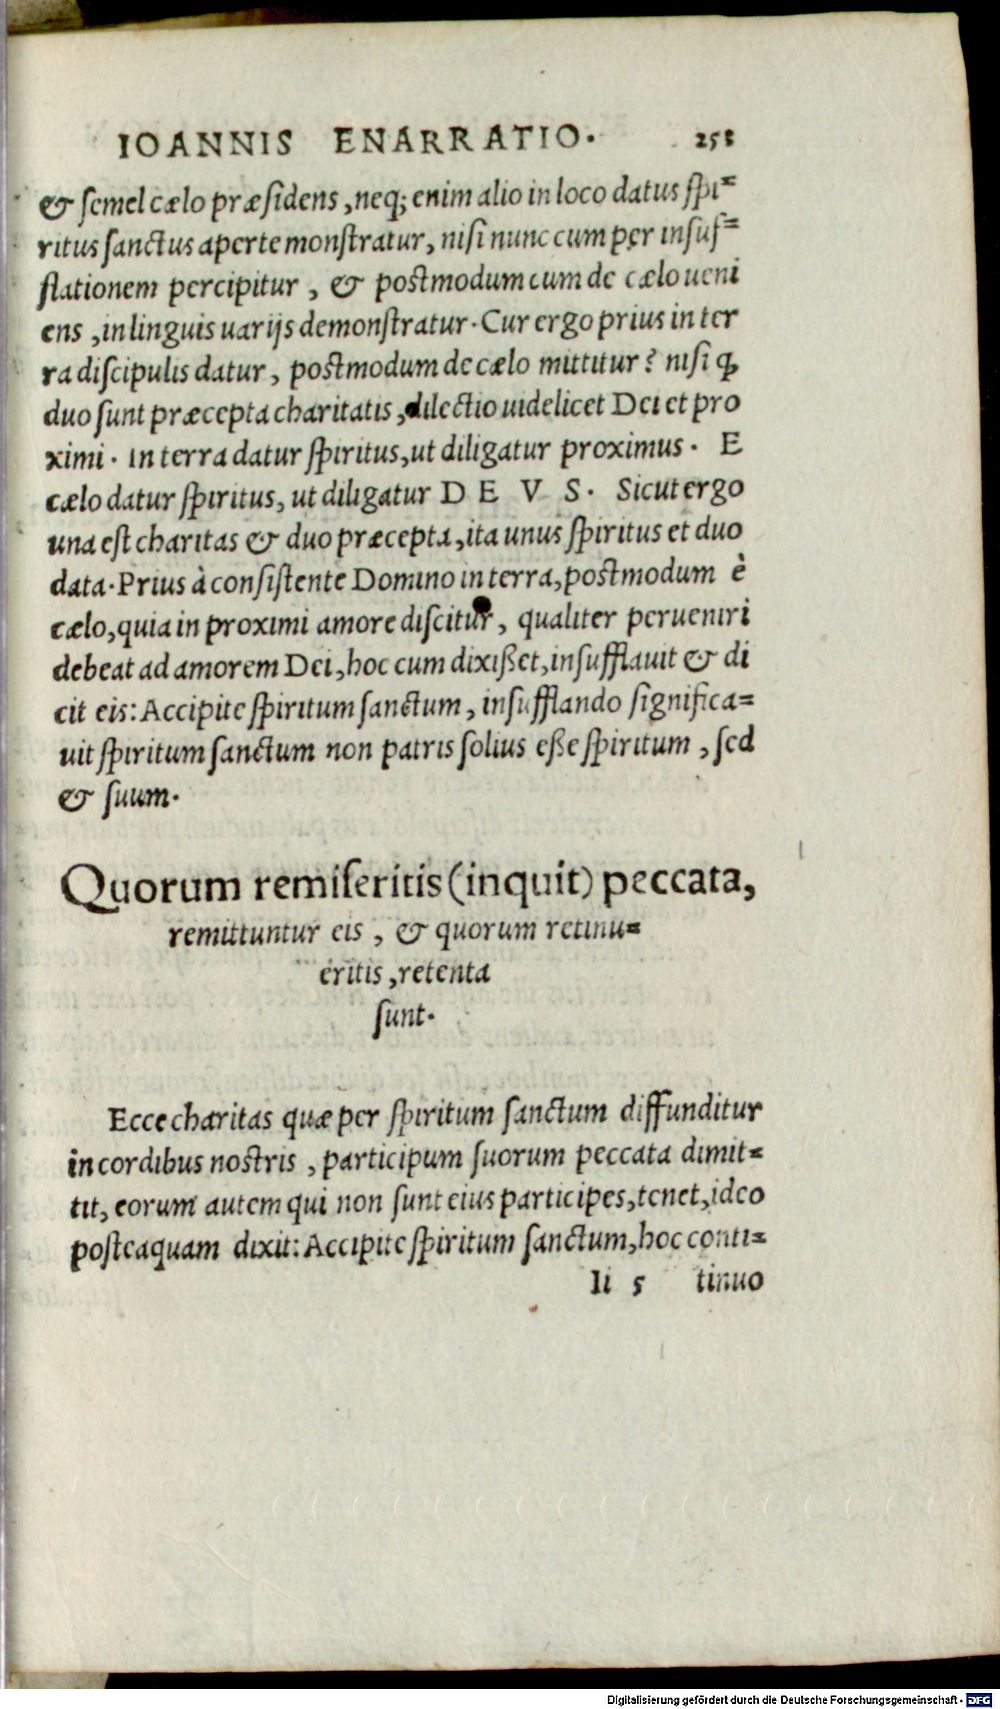 IOANNIS ENARRATIO. 258
& semel cælo præsidens, neq; enim alio in loco datus spi=
ritus sanctus aperte monstratur, nisi nunc cum per insuf=
flationem percipitur, & postmodum cum de cælo ueni
ens, in linguis uarijs demonstratur. Cur ergo prius in ter
ra discipulis datur, postmodum de cælo mittitur? nisi ꝙ
duo sunt præcepta charitatis, dilectio uidelicet Dei et pro
ximi. in terra datur spiritus, ut diligatur proximus. E
cælo datur spiritus, ut diligatur D E V S. Sicut ergo
una est charitas & duo præcepta, ita unus spiritus et duo
data. Prius à consistente Domino in terra, postmodum è
cælo, quia in proximi amore discitur, qualiter perueniri
debeat ad amorem Dei, hoc cum dixißet, insufflauit & di
cit eis: Accipite spiritum sanctum, insufflando significa=
uit spiritum sanctum non patris solius eße spiritum, sed
& suum.
Quorum remiseritis (inquit) peccata,
remittuntur eis, & quorum retinu=
eritis, retenta
sunt.
Ecce charitas quæ per spiritum sanctum diffunditur
in cordibus nostris, participum suorum peccata dimit=
tit, eorum autem qui non sunt eius participes, tenet, ideo
posteaquam dixit: Accipite spiritum sanctum, hoc conti=
Ii 5 tinuo
Digitalisierung gefördert durch die Deutsche Forschungsgemeinschaft - DFG